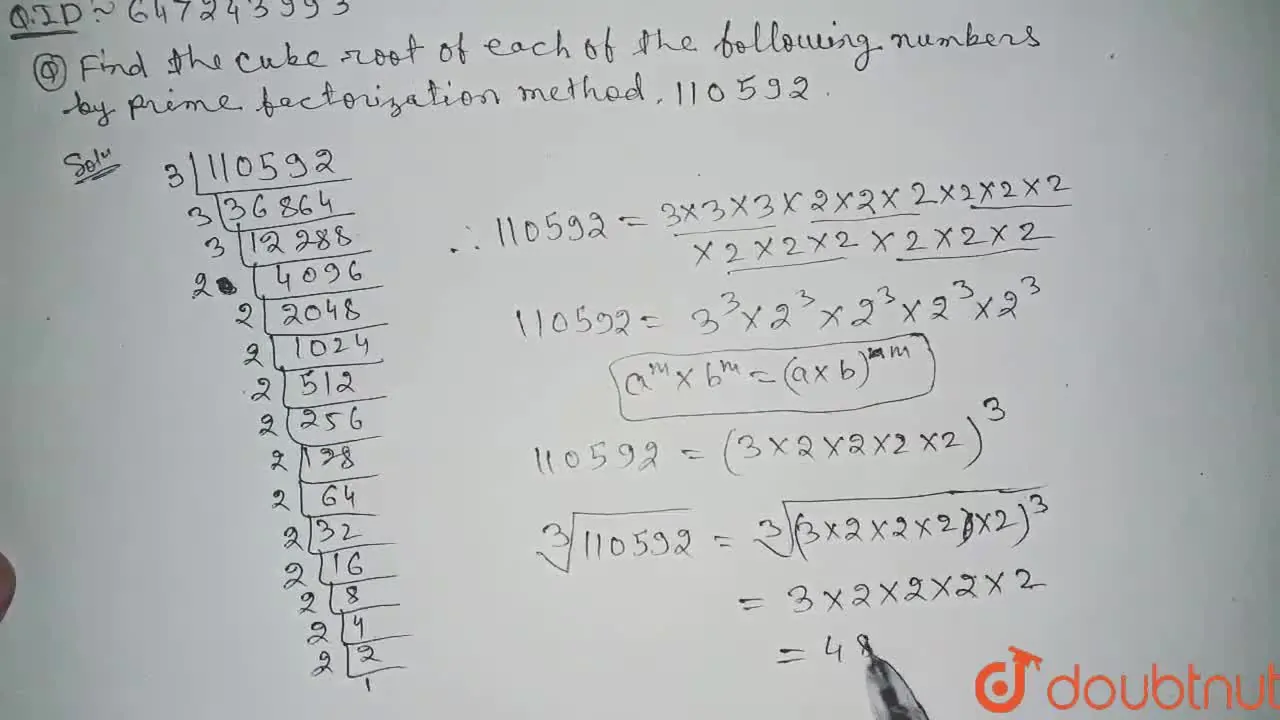 Q.ID ~ 647243993
Q Find the cube root of each of the following numbers
by prime factorization method. 110592.
Soln
3 | 110592
3 | 36864
3 | 12288
2 | 4096
2 | 2048
2 | 1024
2 | 512
2 | 256
2 | 128
2 | 64
2 | 32
2 | 16
2 | 8
2 | 4
2 | 2
1
∴ 110592 = 3×3×3×2×2×2×2×2×2
×2×2×2×2×2×2
110592 = 3³×2³×2³×2³×2³
aᵐ×bᵐ=(a×b)ᵐ
110592 = (3×2×2×2×2)³
∛110592 = ∛(3×2×2×2×2)³
= 3×2×2×2×2
= 48
doubtnut